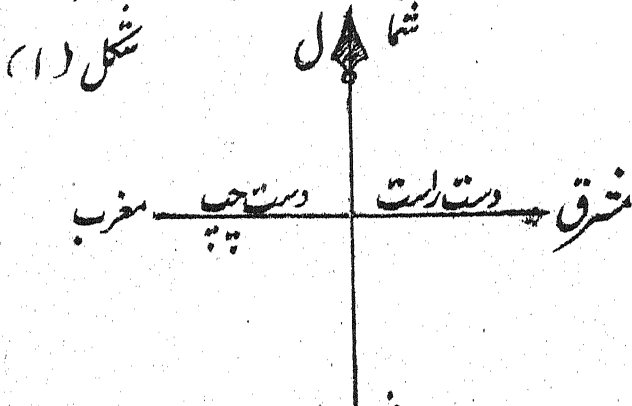 شکل (۱)
شمال
مشرق
دست راست
دست چپ
مغرب